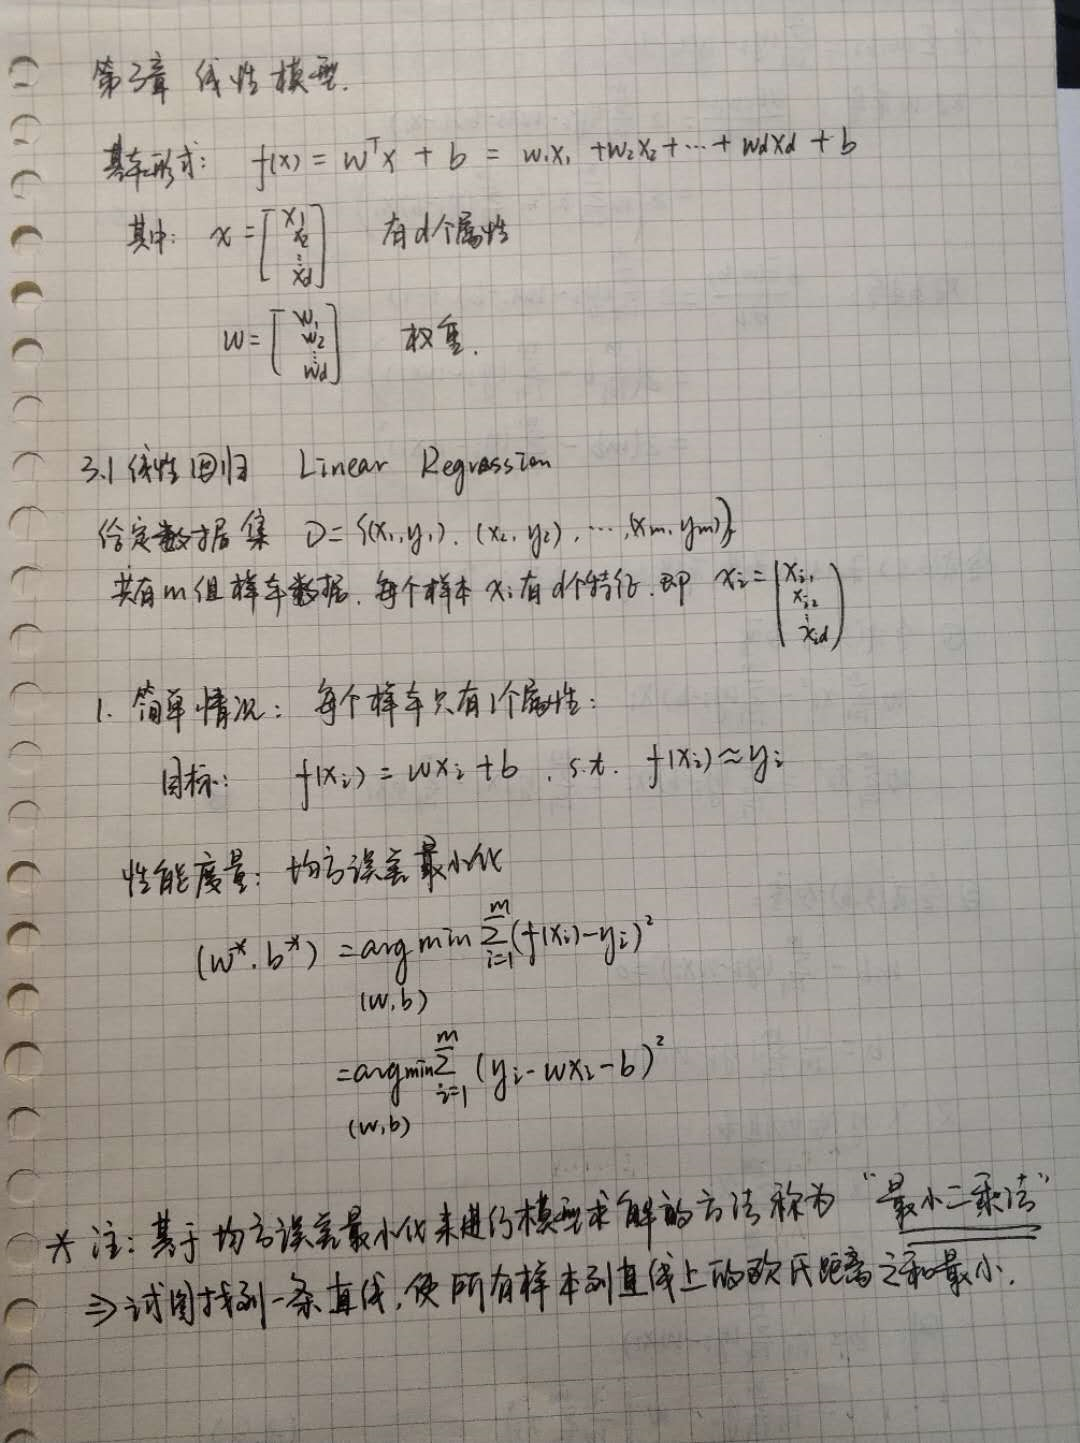 第3章 线性模型.
基本形式: f(x) = wᵀx + b = w₁x₁ + w₂x₂ + ⋯ + wdxd + b
其中: x = [x₁ x₂ ⋮ xd] 有d个属性
w = [w₁ w₂ ⋮ wd] 权重.
3.1 线性回归 Linear Regression
给定数据集 D = {(x₁, y₁), (x₂, y₂), ⋯, (xm, ym)}
共有m组样本数据, 每个样本 xᵢ 有d个特征, 即 xᵢ = (xᵢ₁ xᵢ₂ ⋮ xid)
1. 简单情况: 每个样本只有1个属性:
目标: f(xᵢ) = wxᵢ + b , s.t. f(xᵢ) ≈ yᵢ
性能度量: 均方误差最小化
(w*, b*) = arg min ∑ᵢ₌₁ᵐ (f(xᵢ) − yᵢ)²
(w,b)
= arg min ∑ᵢ₌₁ᵐ (yᵢ − wxᵢ − b)²
(w,b)
* 注: 基于均方误差最小化来进行模型求解的方法称为 “最小二乘法”
⇒ 试图找到一条直线, 使所有样本到直线上的欧氏距离之和最小.